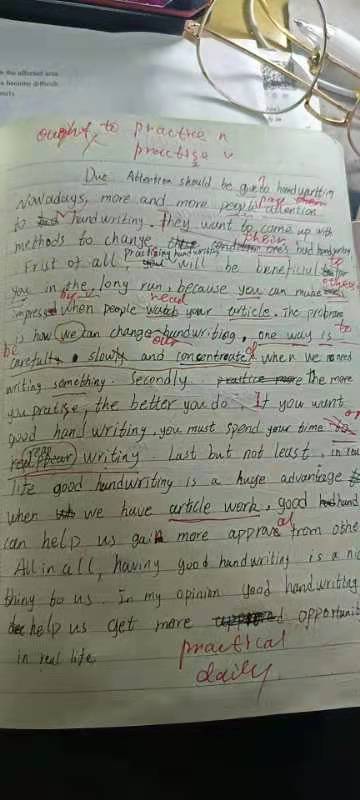 in the affected area
become difficult
ought to practice n
practise v
Due Attention should be given to handwriting
Nowadays, more and more people pay attention
to handwriting. They want to come up with
methods to change their one's bad handwriting
Frist of all, Practising handwriting will be beneficial to for
you in the long run, because you can make others
impressed by when people read watch your article. The problem
is how we can change our handwriting, one way is to
be carefull, slowly and concentreate of when we need
writing something. Secondly the more
you pratise, the better you do. If you want
good handwriting, you must spend your time to on
reappear writing. Last but not least, in real
life good handwriting is a huge advantage
when we have article work, good hand
can help us gain more approval from other
All in all, having good handwriting is a nic
thing to us. In my opinion good handwriting
help us get more opportuni
in real life.
practical
daily